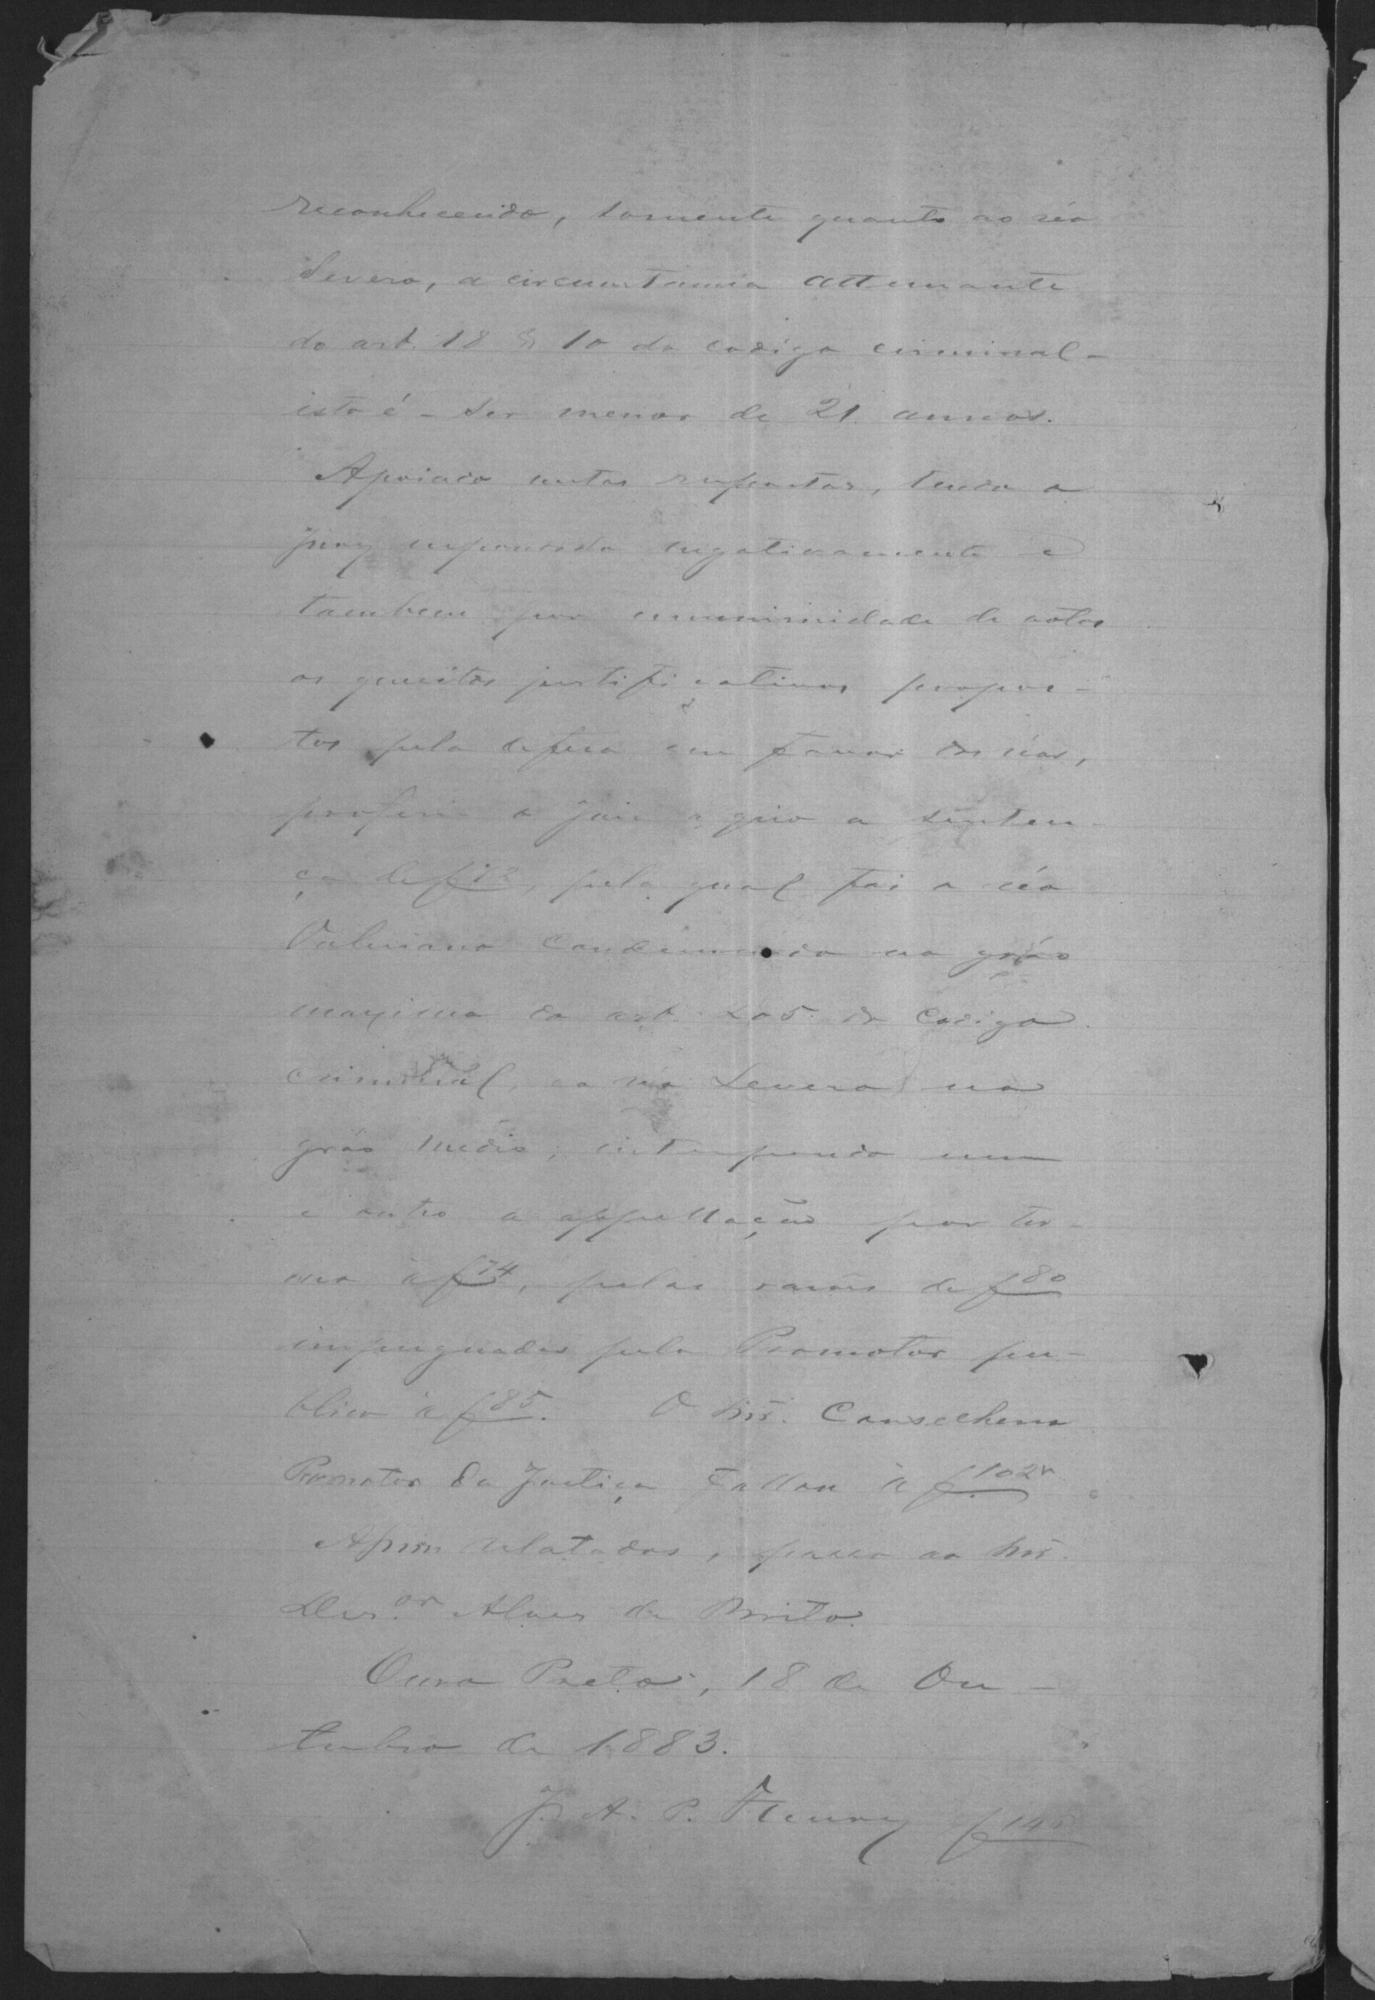 reconhecendo, somente quanto ao réo
Severo, a circumstancia attenuante
do art. 18 § 10 do codigo criminal -
isto é - ser menor de 21 annos.
Apoiado nestas respostas, tendo o
jury respondido negativamente e
tambem por unanimidade de votos
os quesitos justificativos propos-
tos pela defesa em favor dos réos,
proferio o Juiz a quo a senten-
ça de f 72, pela qual foi o réo
Valeriano condemnado no gráo
maximo do art. 205 do Codigo
criminal, e o réo Severo no
gráo medio, interpondo um
e outro a appellação por ter-
mo á f 74, pelas rasões de f 80
impugnadas pelo Promotor pu-
blico á f 85. O Snr. Conselheiro
Promotor da Justiça fallou á f. 102v
Assim relatados, passo ao Snr.
Des.or Alves de Brito.
Ouro Preto, 18 de Ou-
tubro de 1883.
J. A. P. Fleury